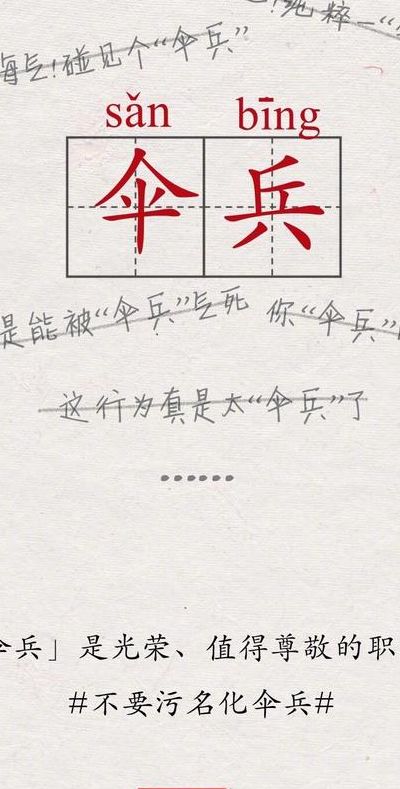 ！纯粹一“
晦气！碰见个“伞兵”
sǎn bīng
伞兵
是能被“伞兵”气死 你“伞兵”
这行为真是太“伞兵”了
……
伞兵」是光荣、值得尊敬的职
#不要污名化伞兵#